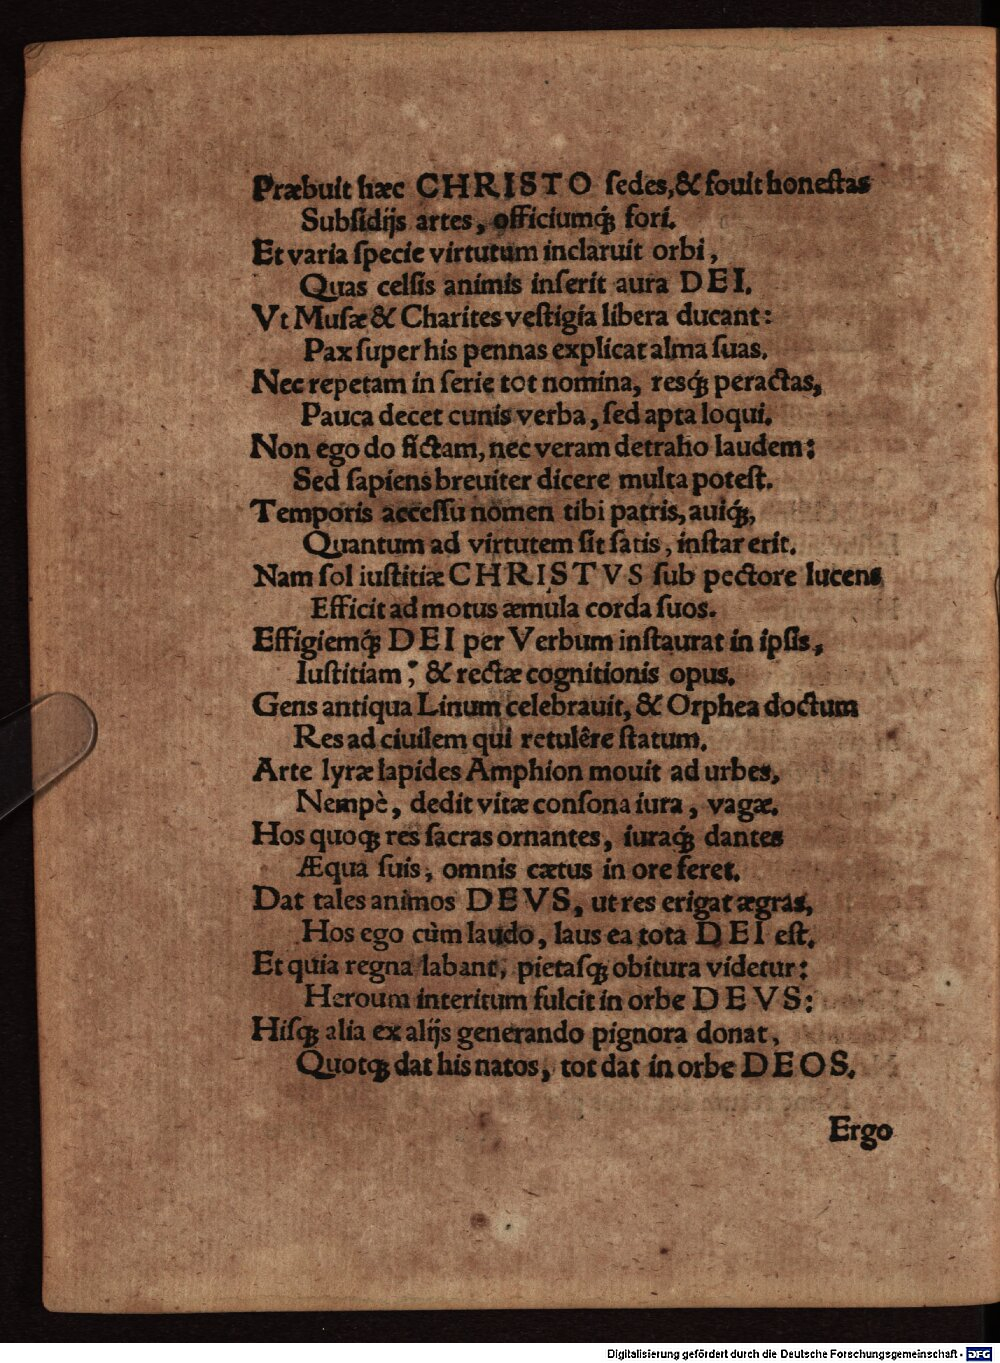 Præbuit hæc CHRISTO ſedes, & fouit honeſtas
Subſidijs artes, officiumq́; fori.
Et varia ſpecie virtutum inclaruit orbi,
Quas celſis animis inſerit aura DEI.
Vt Muſæ & Charites veſtigia libera ducant:
Pax ſuper his pennas explicat alma ſuas.
Nec repetam in ſerie tot nomina, resq́; peractas,
Pauca decet cunis verba, ſed apta loqui.
Non ego do fictam, nec veram detraho laudem:
Sed ſapiens breuiter dicere multa poteſt.
Temporis acceſſu nomen tibi patris, auiq́;,
Quantum ad virtutem ſit ſatis, inſtar erit.
Nam ſol iuſtitiæ CHRISTVS ſub pectore lucens
Efficit ad motus æmula corda ſuos.
Effigiemq́; DEI per Verbum inſtaurat in ipſis,
Iuſtitiam; & rectæ cognitionis opus.
Gens antiqua Linum celebrauit, & Orphea doctum
Res ad ciuilem qui retulêre ſtatum.
Arte lyræ lapides Amphion mouit ad urbes,
Nempè, dedit vitæ conſona iura, vagæ.
Hos quoq; res ſacras ornantes, iuraq́; dantes
Æqua ſuis, omnis cætus in ore feret.
Dat tales animos DEVS, ut res erigat ægras,
Hos ego cùm laudo, laus ea tota DEI eſt.
Et quia regna labant, pietaſq; obitura videtur:
Heroum interitum fulcit in orbe DEVS:
Hiſq; alia ex alijs generando pignora donat,
Quotq; dat his natos, tot dat in orbe DEOS.
Ergo
Digitalisierung gefördert durch die Deutsche Forschungsgemeinschaft - DFG